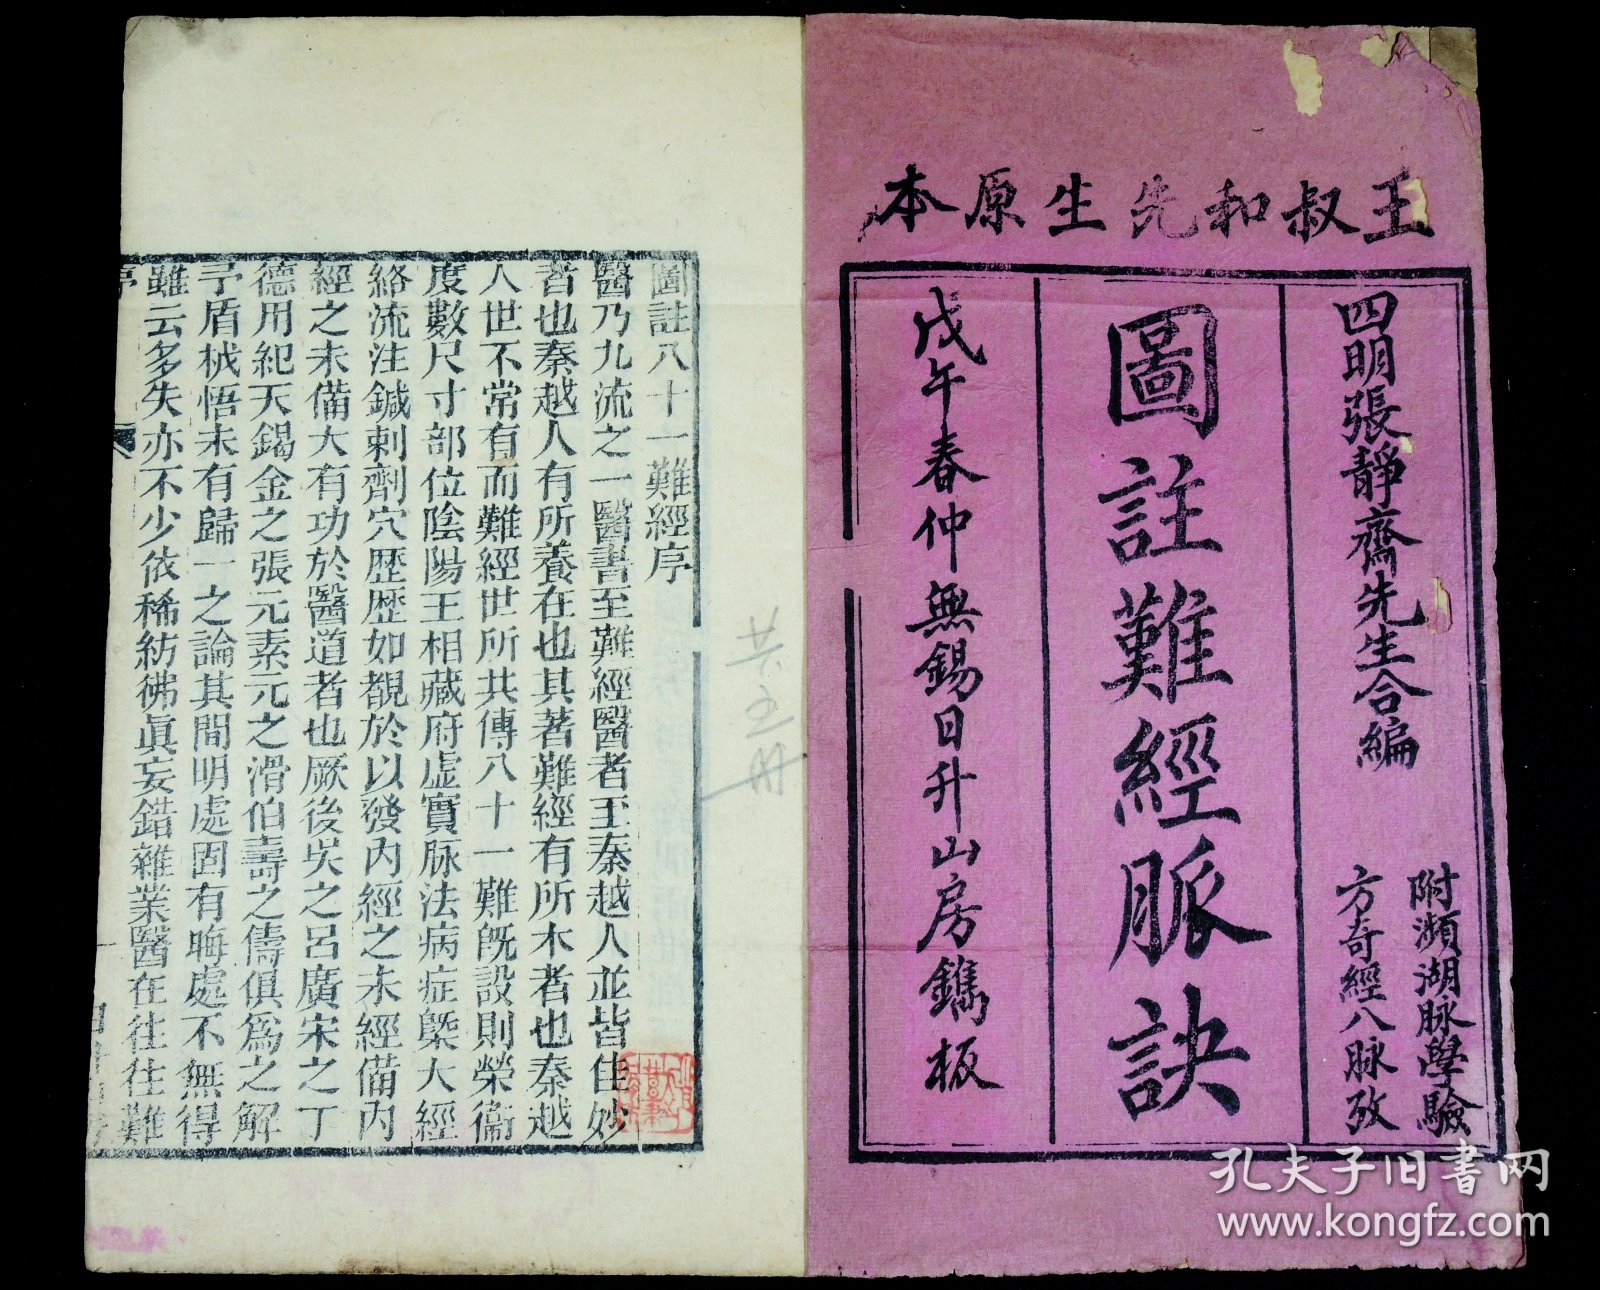 王叔和先生原本
四明張靜齋先生合編
附瀕湖脉學驗
方奇經八脉攷
圖註難經脈訣
戊午春仲無錫日升山房鐫板
圖註八十一難經序
醫乃九流之一醫書至難經醫者至秦越人並皆佳妙
者也秦越人有所養在也其著難經有所本者也秦越
人世不常有而難經世所共傳八十一難旣設則榮衞
度數尺寸部位陰陽王相藏府虛實脉法病症槩大經
絡流注鍼刺劑穴歷歷如覩於以發內經之未經備內
經之未備大有功於醫道者也厥後吳之呂廣宋之丁
德用紀天錫金之張元素元之滑伯壽之儔俱爲之解
予盾枘悟未有歸一之論其間明處固有晦處不無得
雖云多失亦不少依稀紡彿眞妄錯雜業醫在往往難
序
共五册
孔夫子旧书网
www.kongfz.com